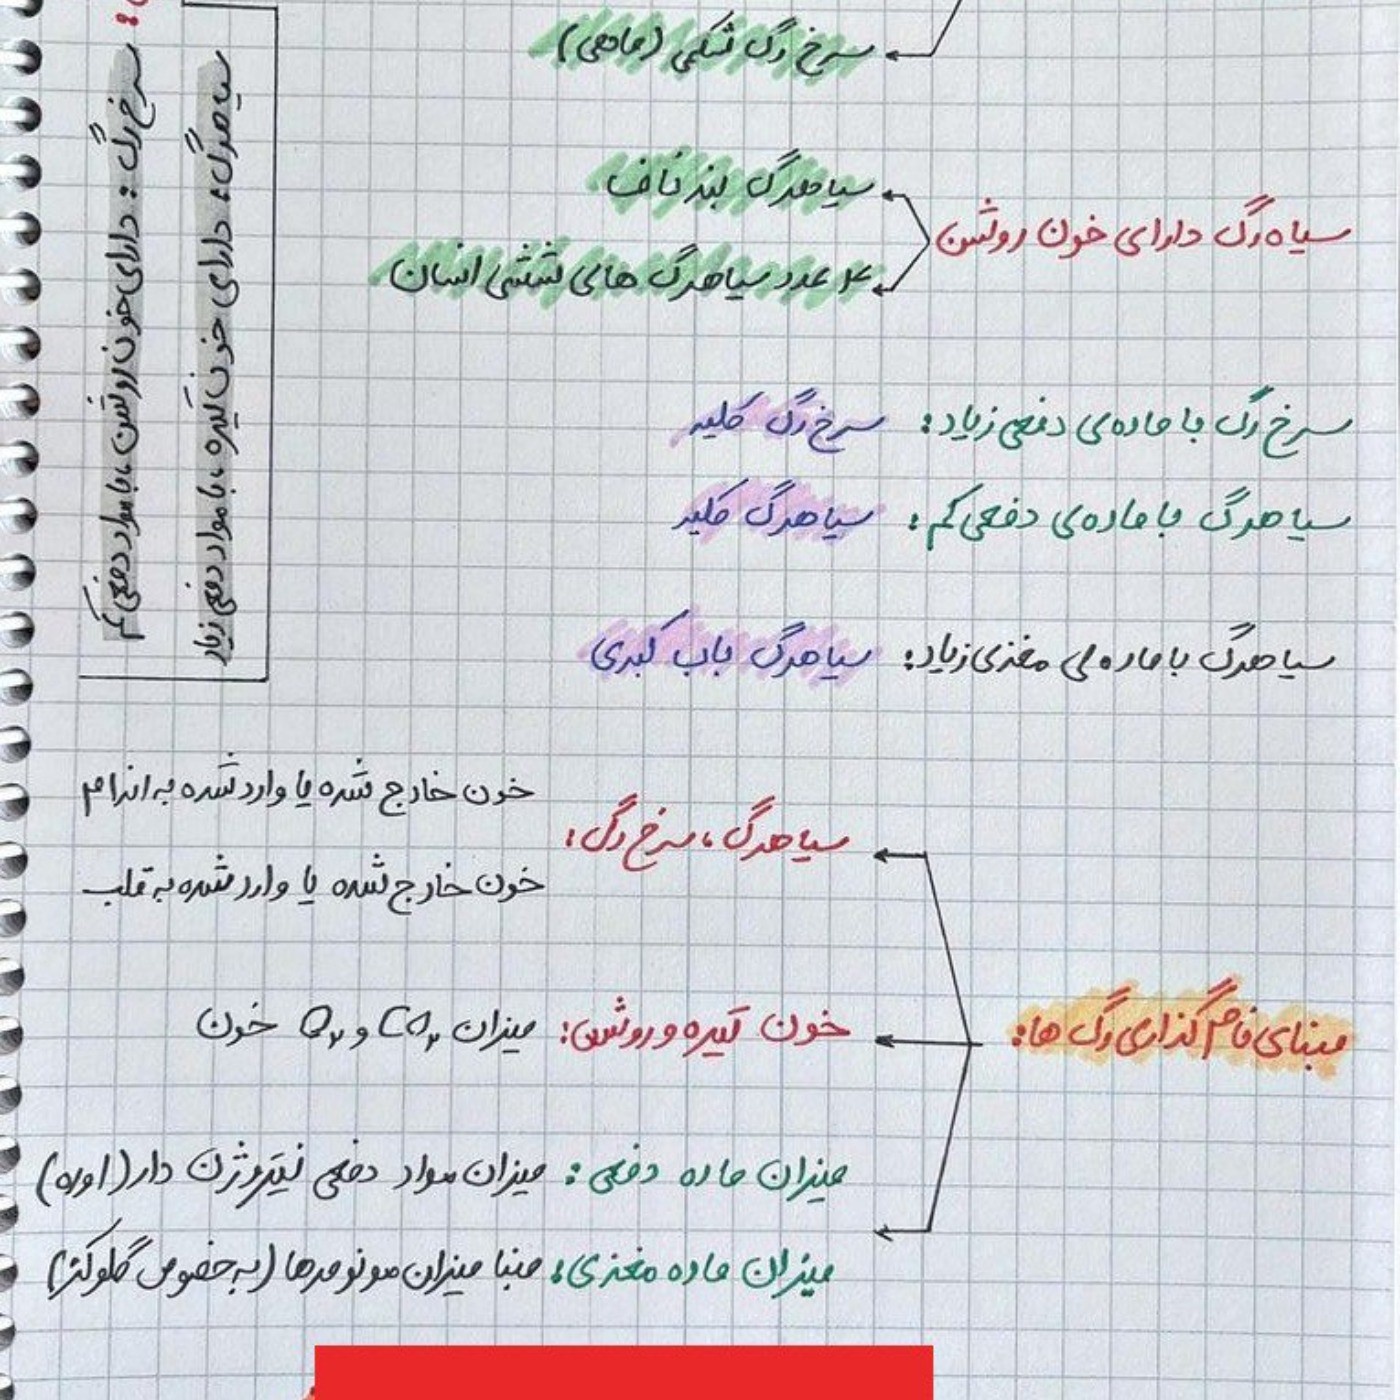 سرخ رگ شکمی (ماهی)
سیاهرگ دارای خون روشن
سیاهرگ بند ناف
۴ عدد سیاهرگ های ششی انسان
سرخ رگ با ماده‌ی دفعی زیاد: سرخ رگ کلیه
سیاهرگ با ماده‌ی دفعی کم: سیاهرگ کلیه
سیاهرگ با ماده ی مغزی زیاد: سیاهرگ باب کبدی
مبنای نام گذاری رگ ها:
سیاهرگ، سرخ رگ:
خون خارج شده یا وارد شده به اندام
خون خارج شده یا وارد شده به قلب
خون تیره و روشن: میزان CO₂ و O₂ خون
میزان ماده دفعی: میزان مواد دفعی نیتروژن دار (اوره)
میزان ماده مغزی: مبنا میزان مونومرها (به خصوص گلوکز)
سرخ رگ: دارای خون روشن، با مواد دفعی کم
سیاهرگ: دارای خون تیره، با مواد دفعی زیاد